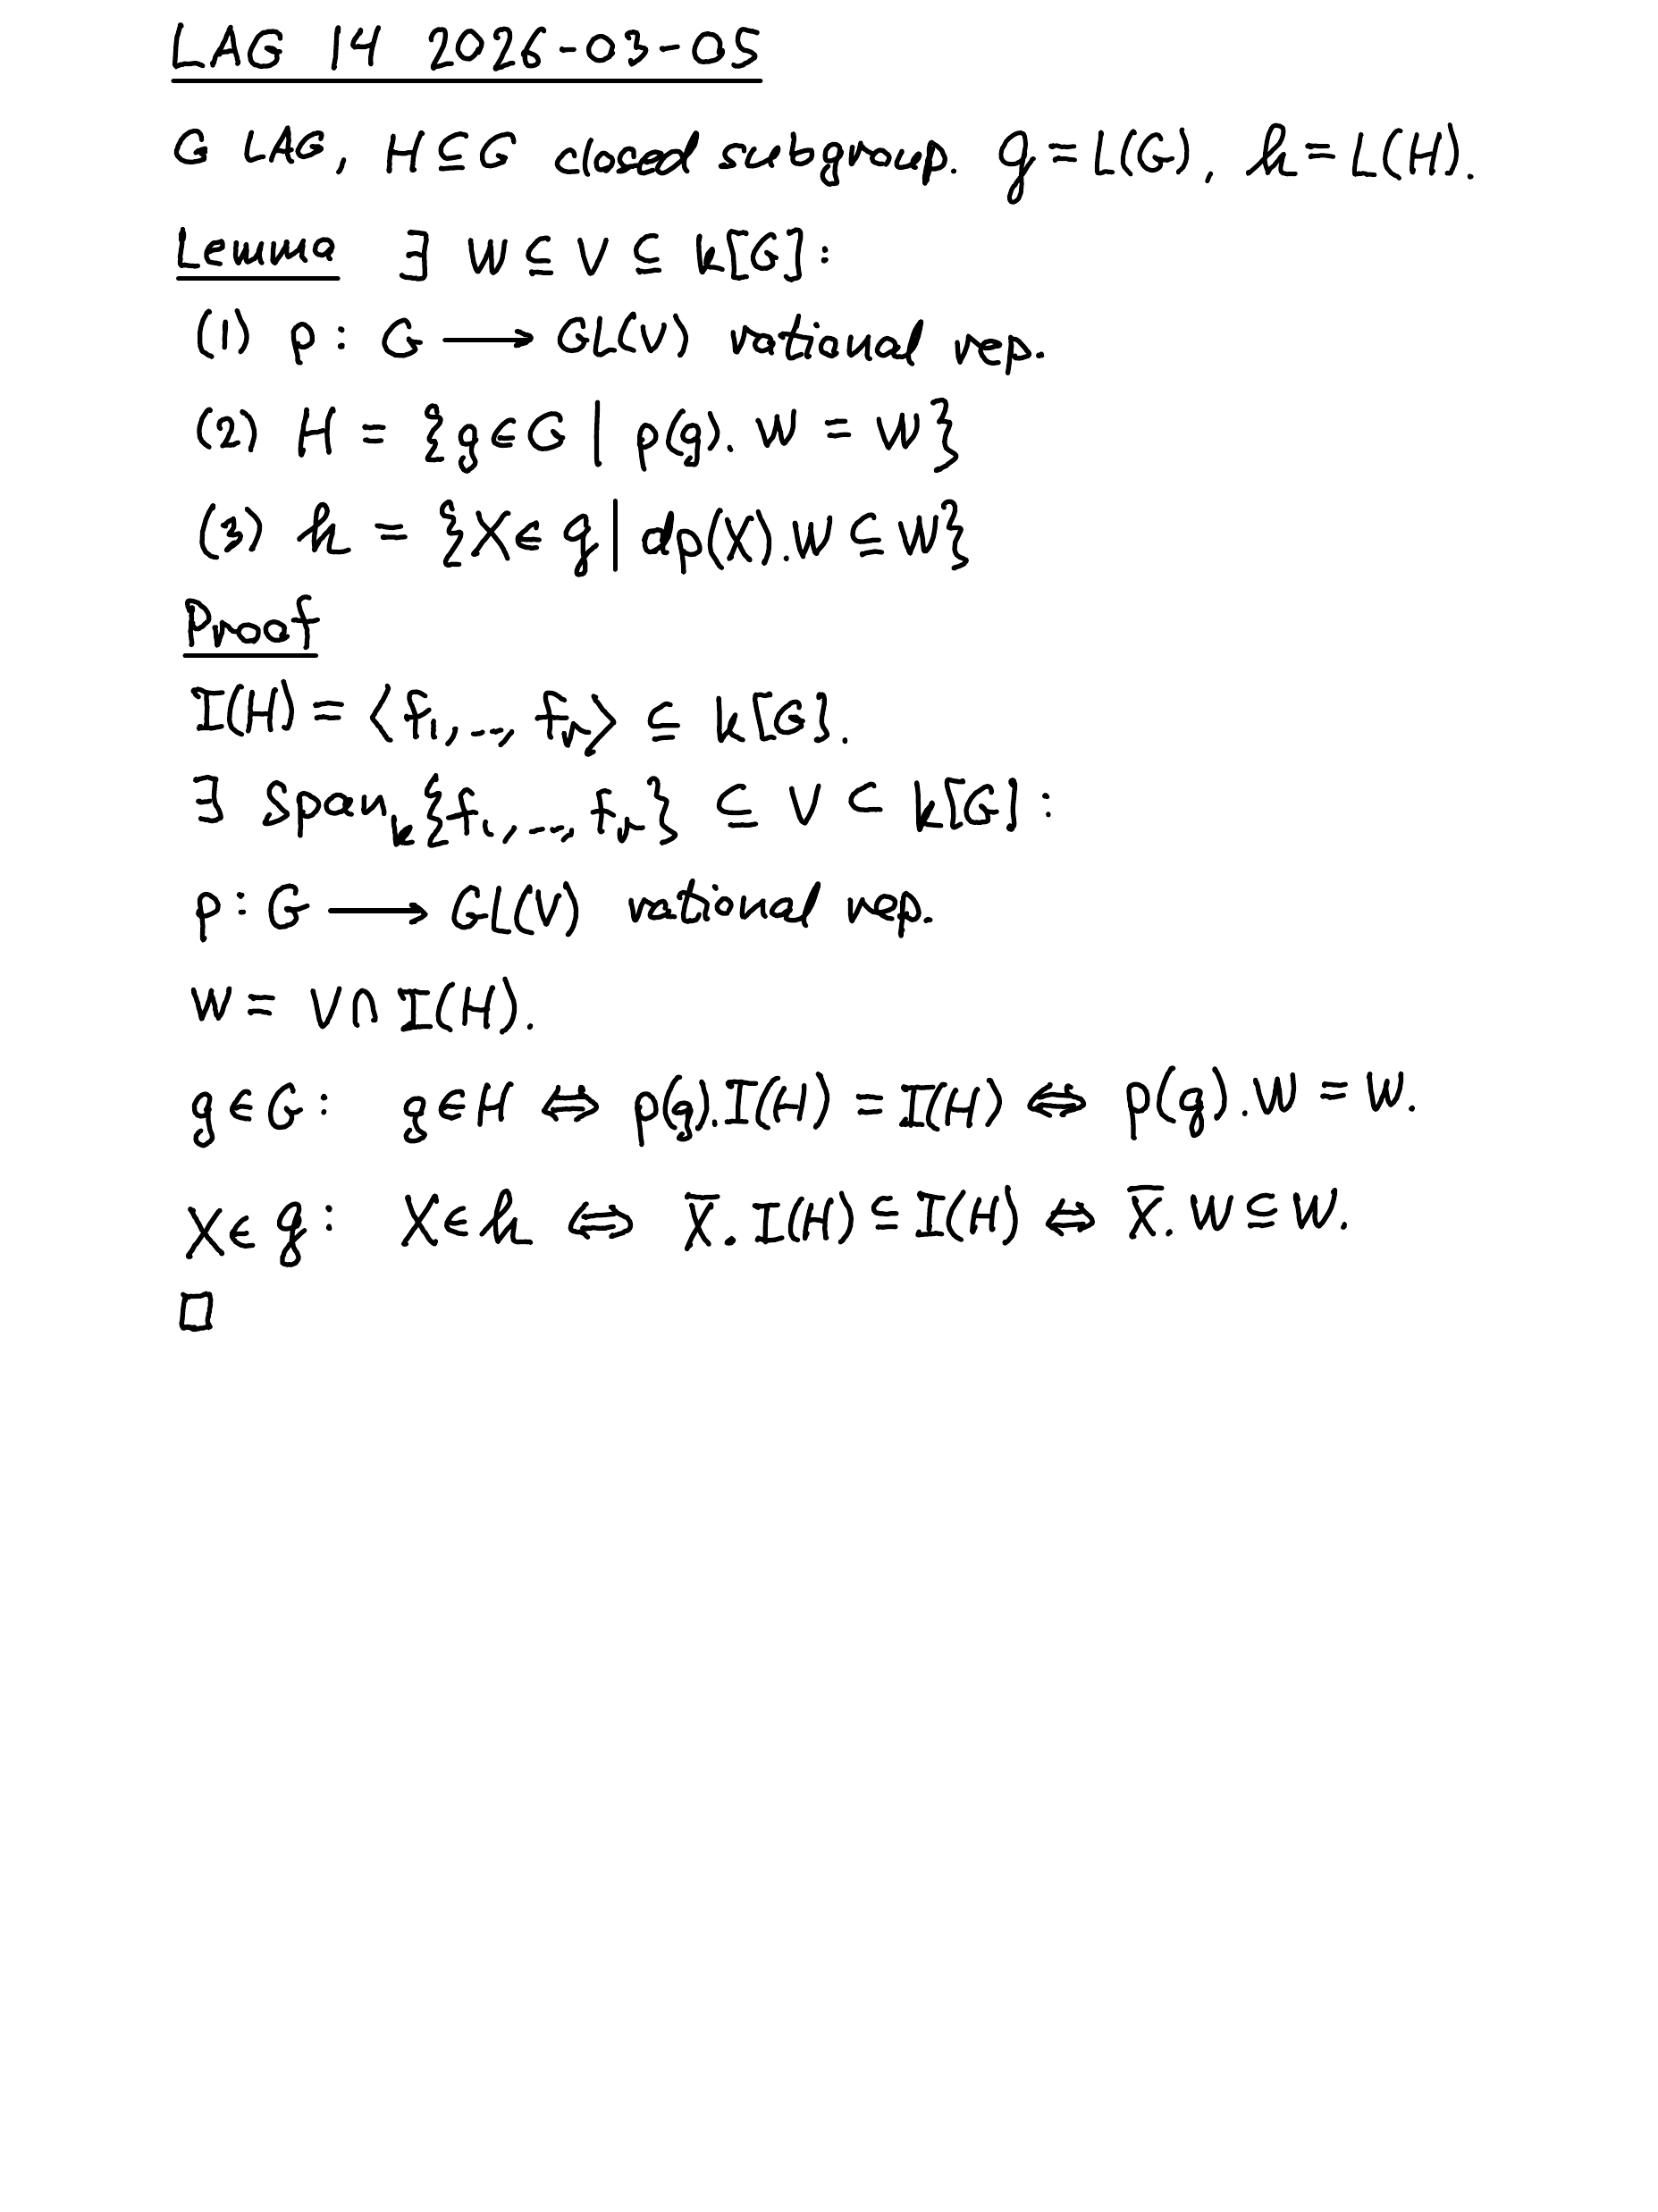 LAG 14 2026-03-05
G LAG, H ⊆ G closed subgroup. 𝔤 = L(G), 𝔥 = L(H).
Lemma ∃ W ⊆ V ⊆ k[G]:
(1) ρ: G ⟶ GL(V) rational rep.
(2) H = {g ∈ G | ρ(g). W = W}
(3) 𝔥 = {X ∈ 𝔤 | dρ(X). W ⊆ W}
Proof
I(H) = ⟨f₁, ..., fᵣ⟩ ⊆ k[G].
∃ Spanₖ{f₁, ..., fᵣ} ⊆ V ⊂ k[G]:
ρ: G ⟶ GL(V) rational rep.
W = V ∩ I(H).
g ∈ G: g ∈ H ⇔ ρ(g). I(H) = I(H) ⇔ ρ(g). W = W.
X ∈ 𝔤: X ∈ 𝔥 ⇔ X̄. I(H) ⊆ I(H) ⇔ X̄. W ⊆ W.
□